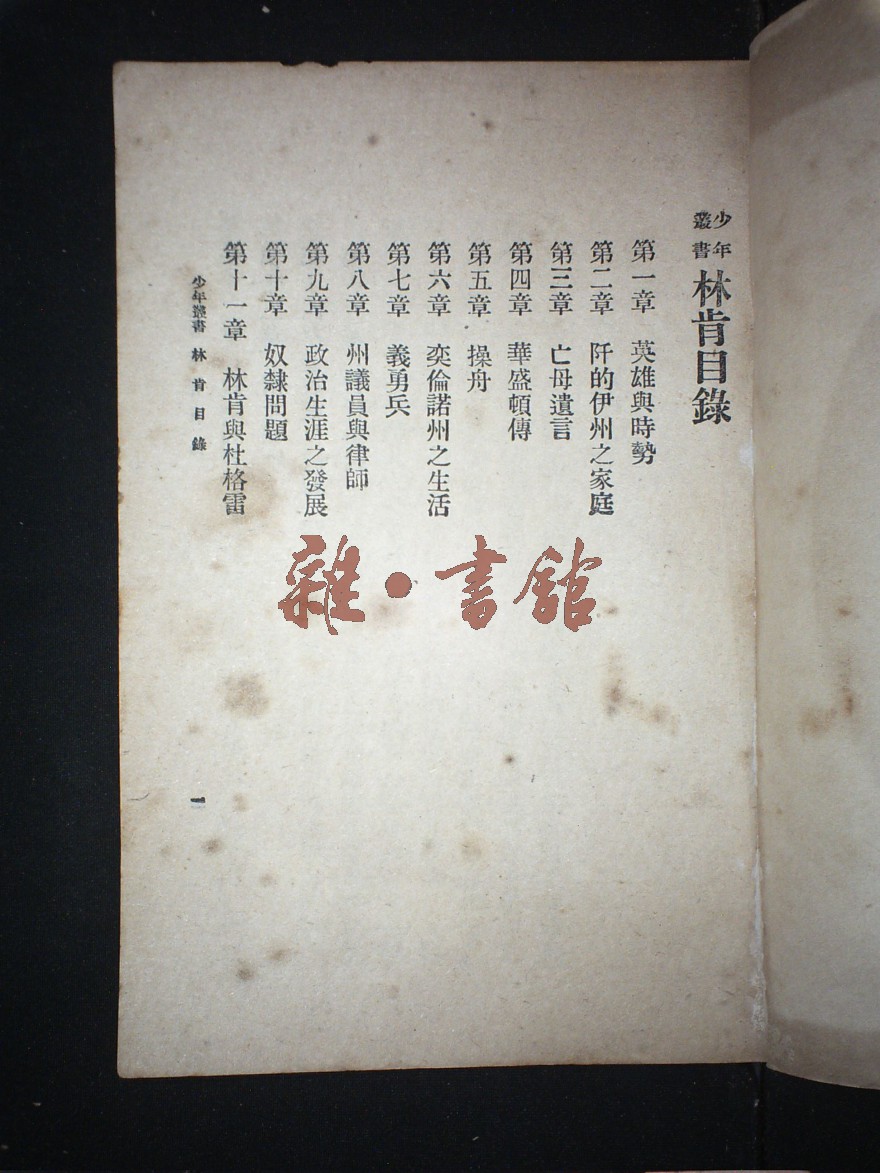 少年叢書 林肯目錄
第一章 英雄與時勢
第二章 阡的伊州之家庭
第三章 亡母遺言
第四章 華盛頓傳
第五章 操舟
第六章 奕倫諾州之生活
第七章 義勇兵
第八章 州議員與律師
第九章 政治生涯之發展
第十章 奴隸問題
第十一章 林肯與杜格雷
少年叢書 林肯目錄
一
雜·書館